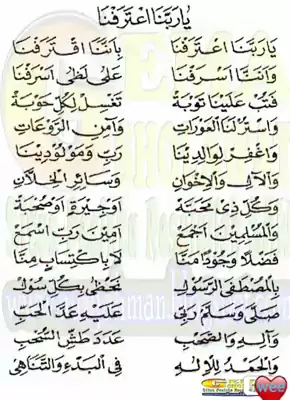 يَارَبَّنَا اعْتَرَفْنَا
يَارَبَّنَا اعْتَرَفْنَا بِأَنَّنَا اقْتَرَفْنَا
وَأَنَّنَا أَسْرَفْنَا عَلَى لَظَى أَشْرَفْنَا
فَتُبْ عَلَيْنَا تَوْبَةً تَغْسِلْ لِكُلِّ حَوْبَةٍ
وَاسْتُرْ لَنَا الْعَوْرَاتِ وَآمِنِ الرَّوْعَاتِ
وَاغْفِرْ لِوَالِدِينَا رَبِّ وَمَوْلُودِينَا
وَالْآلِ وَالْإِخْوَانِ وَسَائِرِ الْخِلَّانِ
وَكُلِّ ذِي مَحَبَّةٍ أَوْجِيْرَةٍ أَوْصُحْبَةٍ
وَالْمُسْلِمِينَ أَجْمَعْ آمِينَ رَبِّ اسْمَعْ
فَضْلًا وَجُوْدًا مَنَّا لَا بِاكْتِسَابٍ مِنَّا
بِالْمُصْطَفَى الرَّسُوْلِ نَحْظَى بِكُلِّ سُوْلٍ
صَلَّى وَسَلَّمَ رَبِّي عَلَيْهِ عَدَّ الْحَبِّ
وَآلِهِ وَالصَّحْبِ عَدَدَ طَشِّ السُّحْبِ
وَالْحَمْدُ لِلْإِلَهِ فِي الْبَدْءِ وَالتَّنَاهِي